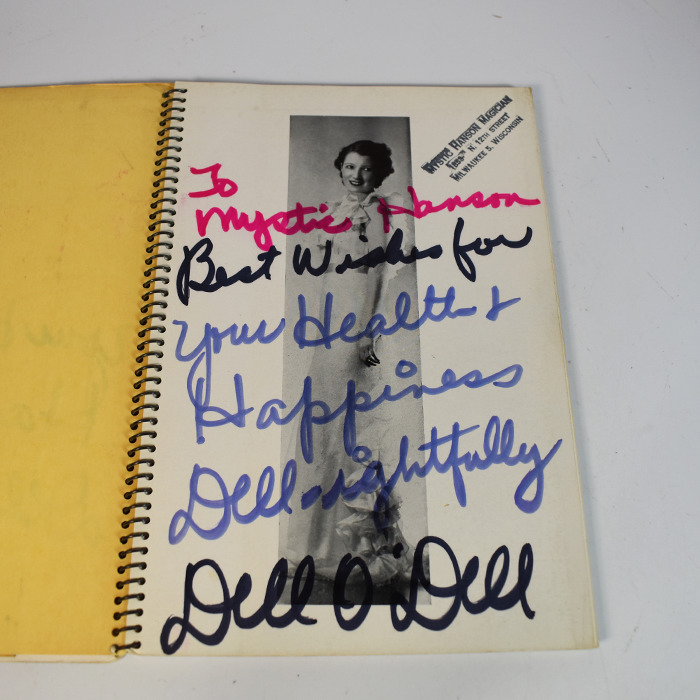 MYSTIC HANSON MAGICIAN
N. 12TH STREET
MILWAUKEE 5, WISCONSIN
To
Mystic Hanson
Best Wishes for
Your Health &
Happiness
Dell-ightfully
Dell O'Dell